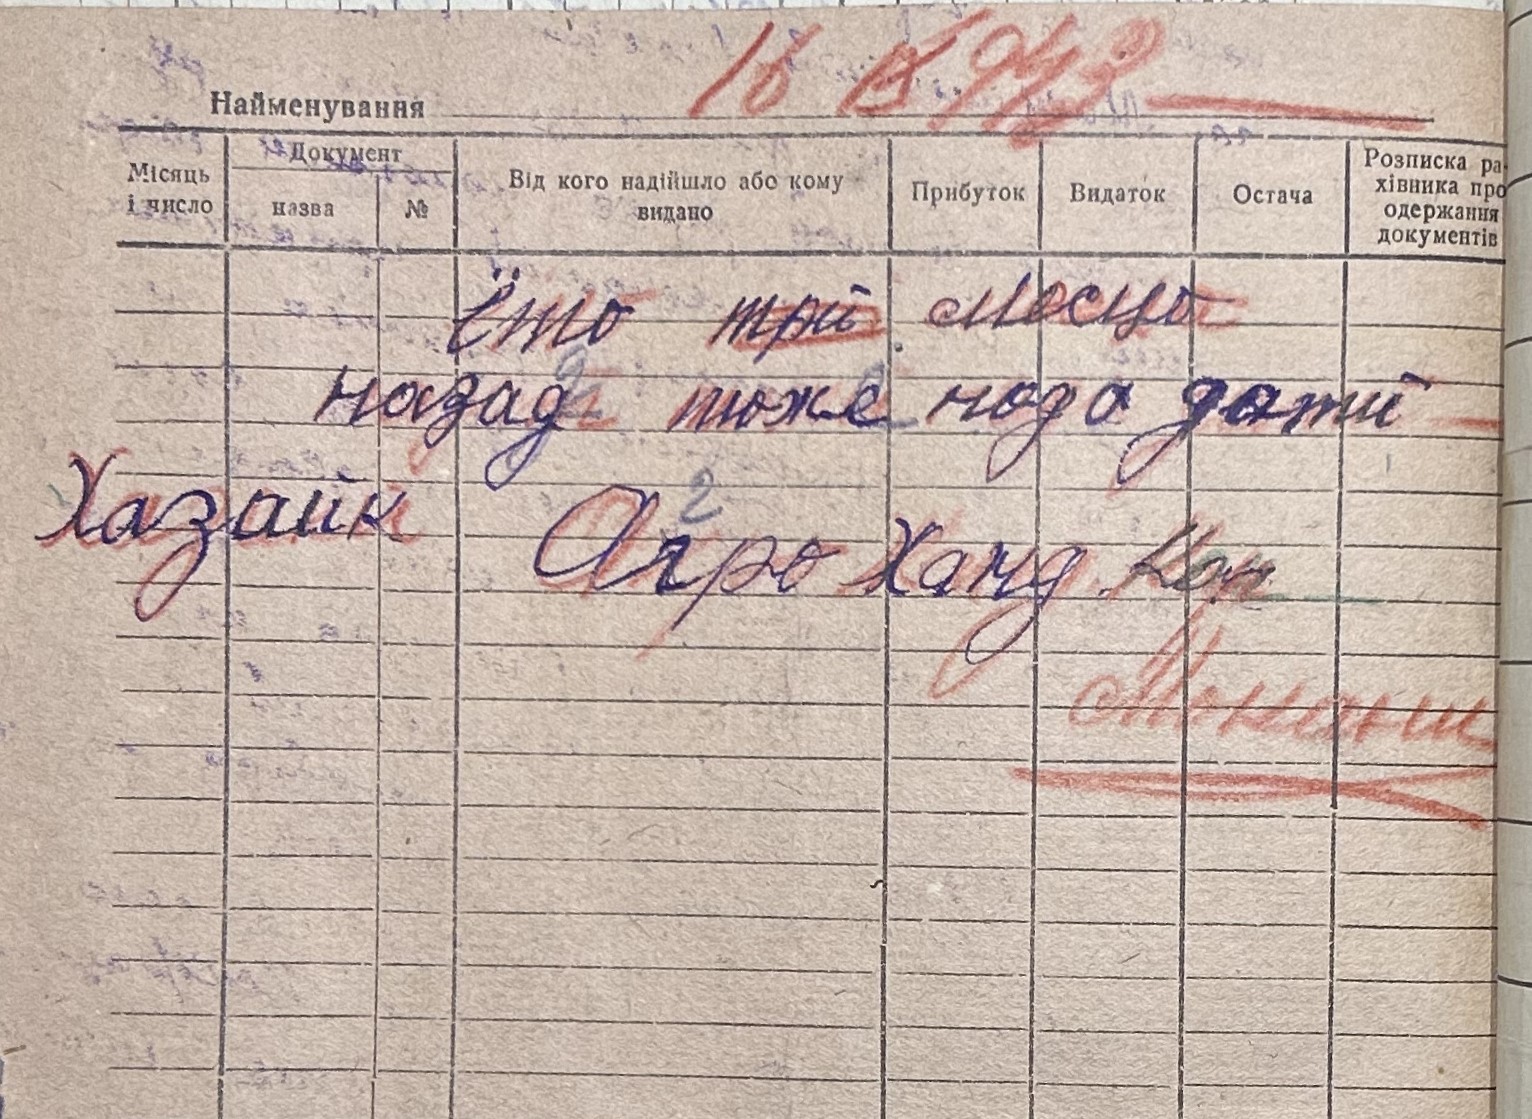 16 IV 943
Найменування
Місяць і число
Документ
назва
№
Від кого надійшло або кому видано
Прибуток
Видаток
Остача
Розписка ра-
хівника про
одержання
документів
ёто три месца
назад тоже надо дати
Хазаин Агро Ханд. Кон